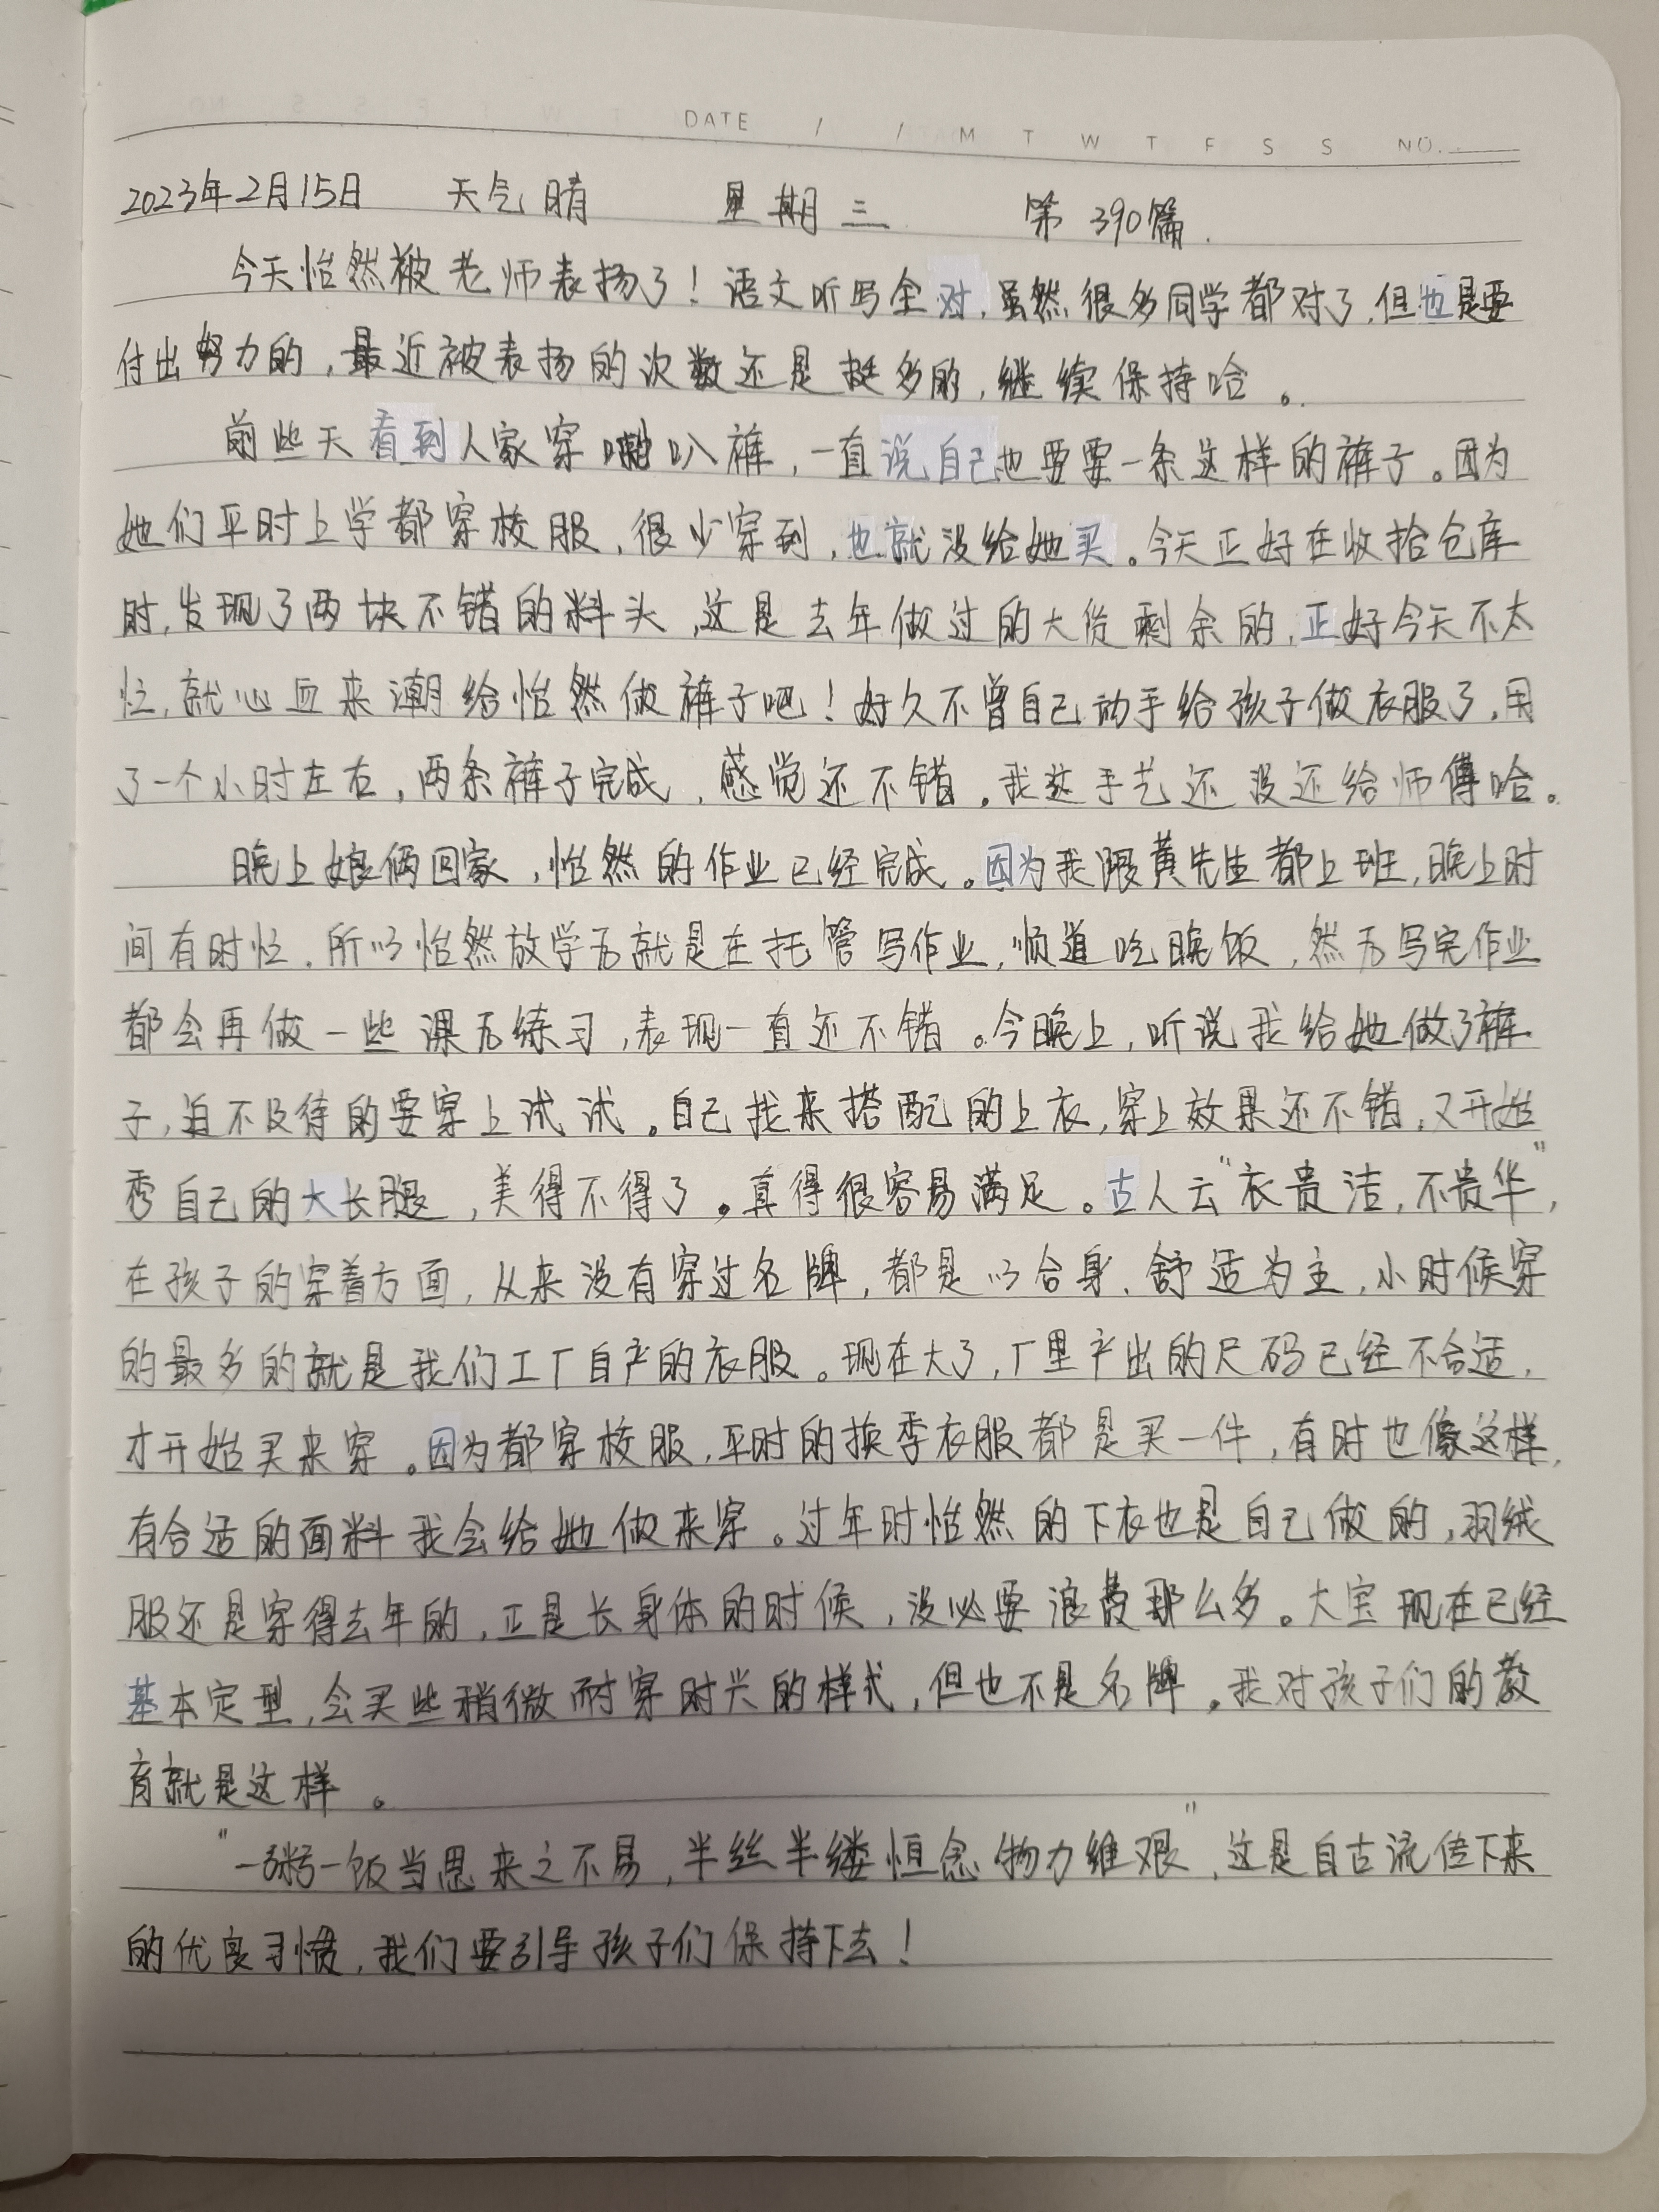 DATE / / M T W T F S S NO.
2023年2月15日 天气晴 星期三 第390篇.
今天怡然被老师表扬了！语文听写全对,虽然很多同学都对了,但也是要
付出努力的,最近被表扬的次数还是挺多的,继续保持哈。
前些天看到人家穿喇叭裤,一直说自己也要要一条这样的裤子。因为
她们平时上学都穿校服,很少穿到,也就没给她买。今天正好在收拾仓库
时,发现了两块不错的料头,这是去年做过的大货剩余的,正好今天不太
忙,就心血来潮给怡然做裤子吧！好久不曾自己动手给孩子做衣服了,用
了一个小时左右,两条裤子完成,感觉还不错。我这手艺还没还给师傅哈。
晚上娘俩回家,怡然的作业已经完成。因为我跟黄先生都上班,晚上时
间有时忙.所以怡然放学后就是在托管写作业,顺道吃晚饭,然后写完作业
都会再做一些课后练习,表现一直还不错。今晚上,听说我给她做了裤
子,迫不及待的要穿上试试。自己找来搭配的上衣,穿上效果还不错,又开始
秀自己的大长腿,美得不得了。真得很容易满足。古人云“衣贵洁,不贵华”,
在孩子的穿着方面,从来没有穿过名牌,都是以合身、舒适为主,小时候穿
的最多的就是我们工厂自产的衣服。现在大了,厂里产出的尺码已经不合适,
才开始买来穿。因为都穿校服,平时的换季衣服都是买一件,有时也像这样,
有合适的面料我会给她做来穿。过年时怡然的下衣也是自己做的,羽绒
服还是穿得去年的,正是长身体的时候,没必要浪费那么多。大宝现在已经
基本定型,会买些稍微耐穿时兴的样式,但也不是名牌。我对孩子们的教
育就是这样。
“一粥一饭当思来之不易,半丝半缕恒念物力维艰”,这是自古流传下来
的优良习惯,我们要引导孩子们保持下去！